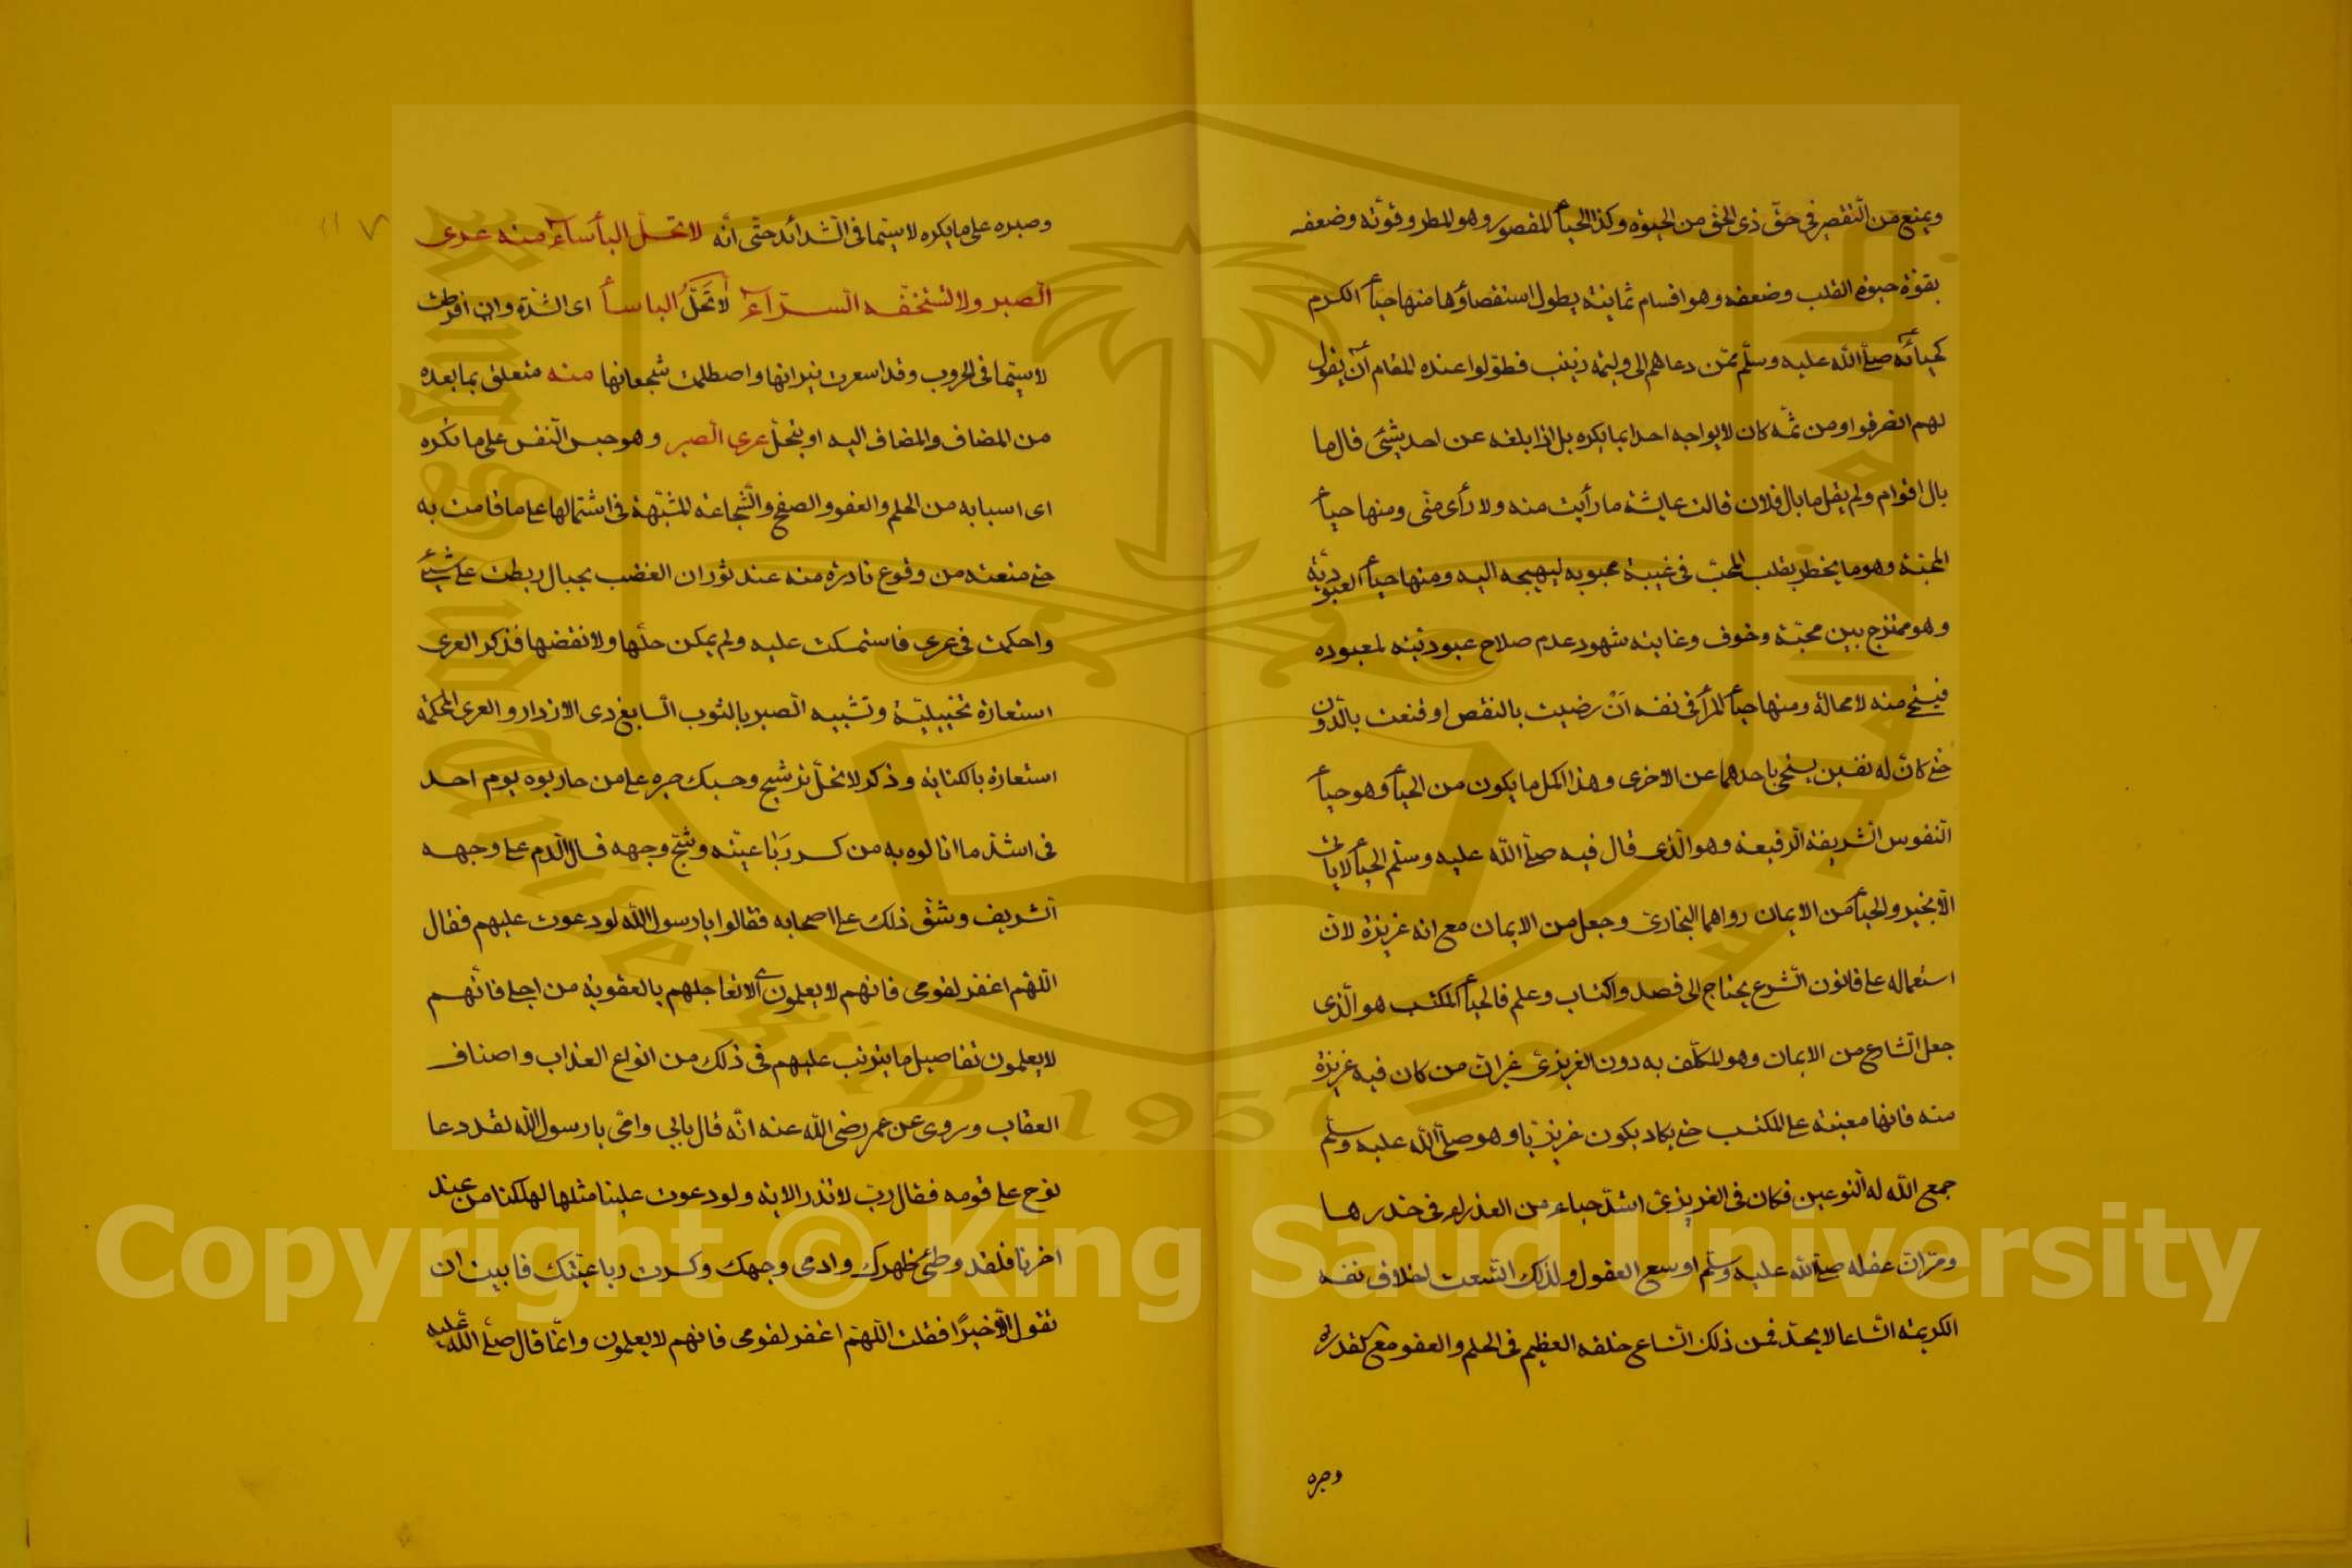 ويمنع من التقصير في حق ذى الحق من الحيوة وكذا الحيأ المقصور وهو المطر وقوته وضعفه
بقوة حيوة القلب وضعفه وهو اقسام ثمانية يطول استقصاؤها منها حيأ الكرم
كحيائه صلى الله عليه وسلم ممن دعاهم الى وليمة زينب فطولوا عنده المقام ان يقول
لهم انصرفوا ومن ثمه كان لا يواجه احدا بما يكره بل اذا بلغه عن احد شيئ قال ما
بال اقوام ولم يقل ما بال فلان قالت عايشة ما رأيت منه ولا رأى منى ومنها حيأ
المحبة وهو ما يخطر بقلب المحب فى غيبة محبوبه ليهيجه اليه ومنها حيأ العبودية
وهو ممتزج بين محبة وخوف وغايته شهود عدم صلاح عبوديته لمعبوده
فيستحى منه لا محالة ومنها حيأ المرأ فى نفسه ان رضيت بالنقص او قنعت بالدون
حتى كان له نفسين يستحى باحدهما عن الاخرى وهذا اكمل ما يكون من الحيأ وهو حيأ
النفوس الشريفة الرفيعة وهو الذى قال فيه صلى الله عليه وسلم الحيأ لا ياتى
الا بخير والحيأ من الايمان رواهما البخارى وجعل من الايمان مع انه غريزة لان
استعماله على قانون الشرع يحتاج الى قصد واكتساب وعلم فالحيأ المكتسب هو الذى
جعل الشارع من الايمان وهو المكلف به دون الغريزى غير ان من كان فيه غريزة
منه فانها معينة على المكتسب حتى يكاد يكون غريزيا وهو صلى الله عليه وسلم
جمع الله له النوعين فكان فى الغريزى اشد حياء من العذراء فى خدرها
ومر ان عقله صلى الله عليه وسلم اوسع العقول ولذلك اتسعت اخلاق نفسه
الكريمة اتساعا لا يحد فمن ذلك اتساع خلقه العظيم فى الحلم والعفو مع القدرة
وصبره
وصبره على ما يكره لا سيما فى الشدائد حتى انه لا تحل البأساء منه عرى
الصبر ولا تستخفه السرآء لا تَحُلّ الباسأ اى الشدة وان افرطت
لا سيما فى الحروب وقد اسعرت نيرانها واصطلمت شجعانها منه متعلق بما بعده
من المضاف والمضاف اليه او بتحل عرى الصبر وهو حبس النفس على ما تكره
اى اسبابه من الحلم والعفو والصفح والشجاعة المشبهة فى اشتمالها على ما قامت به
حتى منعته من وقوع نادرة منه عند ثوران الغضب بحبال ربطت على شيئ
واحكمت فى عرى فاستمسكت عليه ولم يمكن حلها ولا نقضها فذكر العرى
استعارة تخييلية وتشبيه الصبر بالثوب السابغ ذى الازرار والعرى المحكمة
استعارة بالكناية وذكر لا تحل ترشيح وحسبك صبره على من حاربوه يوم احد
فى اشد ما انالوه به من كسر رَبَاعيته وشج وجهه فسال الدم على وجهه
الشريف وشق ذلك على اصحابه فقالوا يا رسول الله لو دعوت عليهم فقال
اللهم اغفر لقومى فانهم لا يعلمون اى لا تعاجلهم بالعقوبة من اجلى فانهم
لا يعلمون تفاصيل ما يترتب عليهم فى ذلك من انواع العذاب واصناف
العقاب وروى عن عمر رضى الله عنه انه قال بابي وامى يا رسول الله لقد دعا
نوح على قومه فقال رب لا تذر الاية ولو دعوت علينا مثلها لهلكنا من عند
اخرنا فلقد وطئ ظهرك وادمى وجهك وكسرت رباعيتك فابيت ان
تقول الا خيرًا فقلت اللهم اغفر لقومى فانهم لا يعلمون وانما قال صلى الله عليه
King Saud University
1957
Copyright © King Saud University